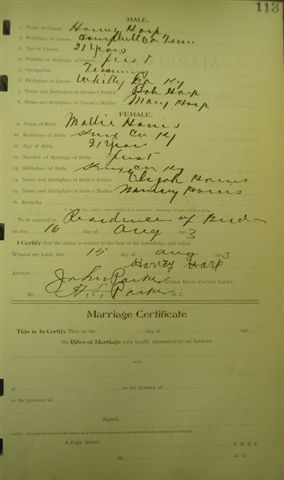 113
MALE.
1. Name of Groom Harvy Harp
2. Residence of Groom Campbell Co Tenn
3. Age of Groom 21 years
4. Number of Marriage of Groom first
5. Occupation
6. Birthplace of Groom Whitly Co Ky
7. Name and Birthplace of Groom's Father Bob Harp
8. Name and Birthplace of Groom's Mother Mary Harp
FEMALE.
9. Name of Bride Mollie Harris
10. Residence of Bride Knox Co Ky
11. Age of Bride 21 year
12. Number of Marriage of Bride first
13. Birthplace of Bride Knox Co Ky
14. Name and Birthplace of Bride's Father Elijah Harris
15. Name and Birthplace of Bride's Mother Harris
16. Remarks
To be married at Residence of Bride
on the 16 day of Aug 3
I Certify that the above is correct to the best of my knowledge and belief.
Witness my hand, this 15 day of aug 3
Harvey Harp
Attest:
John Parker CLERK KNOX COUNTY COURT.
By Parker D.C.
Marriage Certificate
This is to Certify That on the day of
the Rites of Marriage were legally solemnized by me between
and
at in the County of
in the presence of
Signed,
A Copy Attest: C. K. C. C.
By D. C.